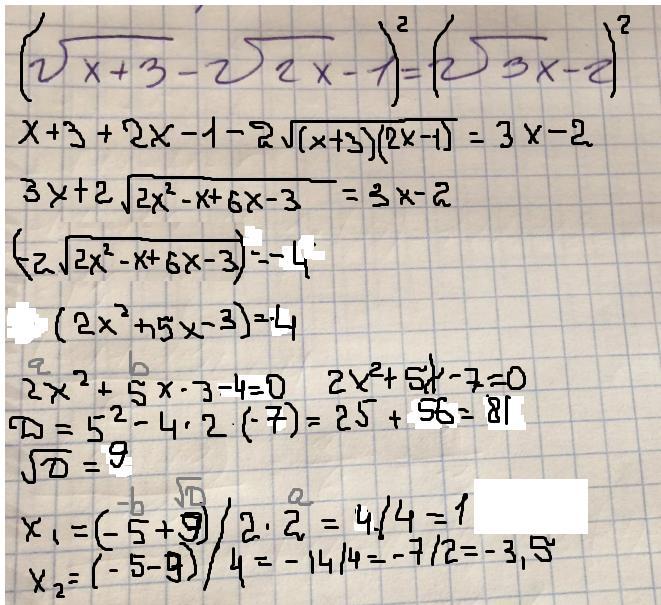 (2√x+3 - 2√2x - 1)² = (2√3x - 2)²
x+3+2x-1-2√(x+3)(2x-1) = 3x-2
3x+2√2x²-x+6x-3 = 3x-2
(-2√2x²-x+6x-3) = -4
(2x²+5x-3)=4
a b
2x²+5x·3-4=0 2x²+5x-7=0
D = 5²-4·2·(-7) = 25+56 = 81
√D = 9
-b √D a
x₁ = (-5+9)/2·2 = 4/4 = 1
x₂ = (-5-9)/4 = -14/4 = -7/2 = -3,5